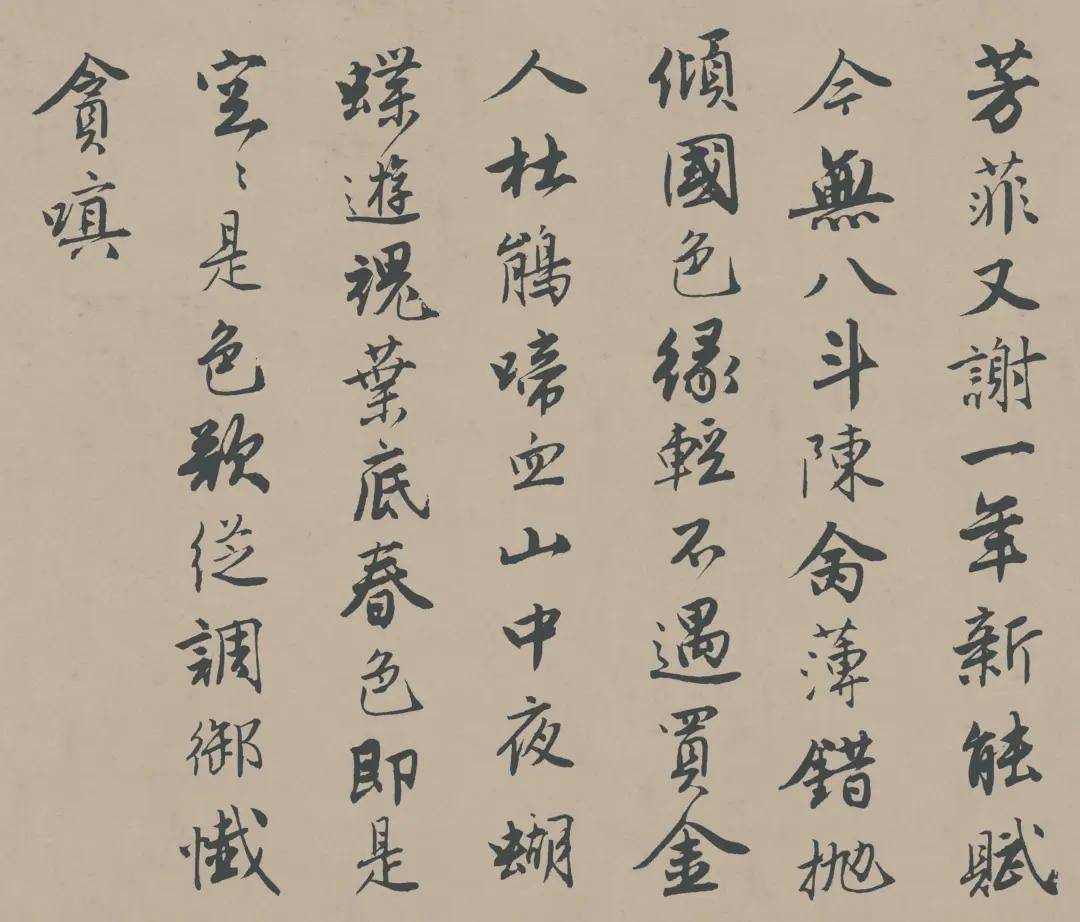 芳菲又謝一年新能賦
今無八斗陳禽薄錯抛
傾國色緣輕不遇買金
人杜鵑啼血山中夜蝴
蝶遊魂葉底春色即是
空〻是色欲從調御懺
貪嗔